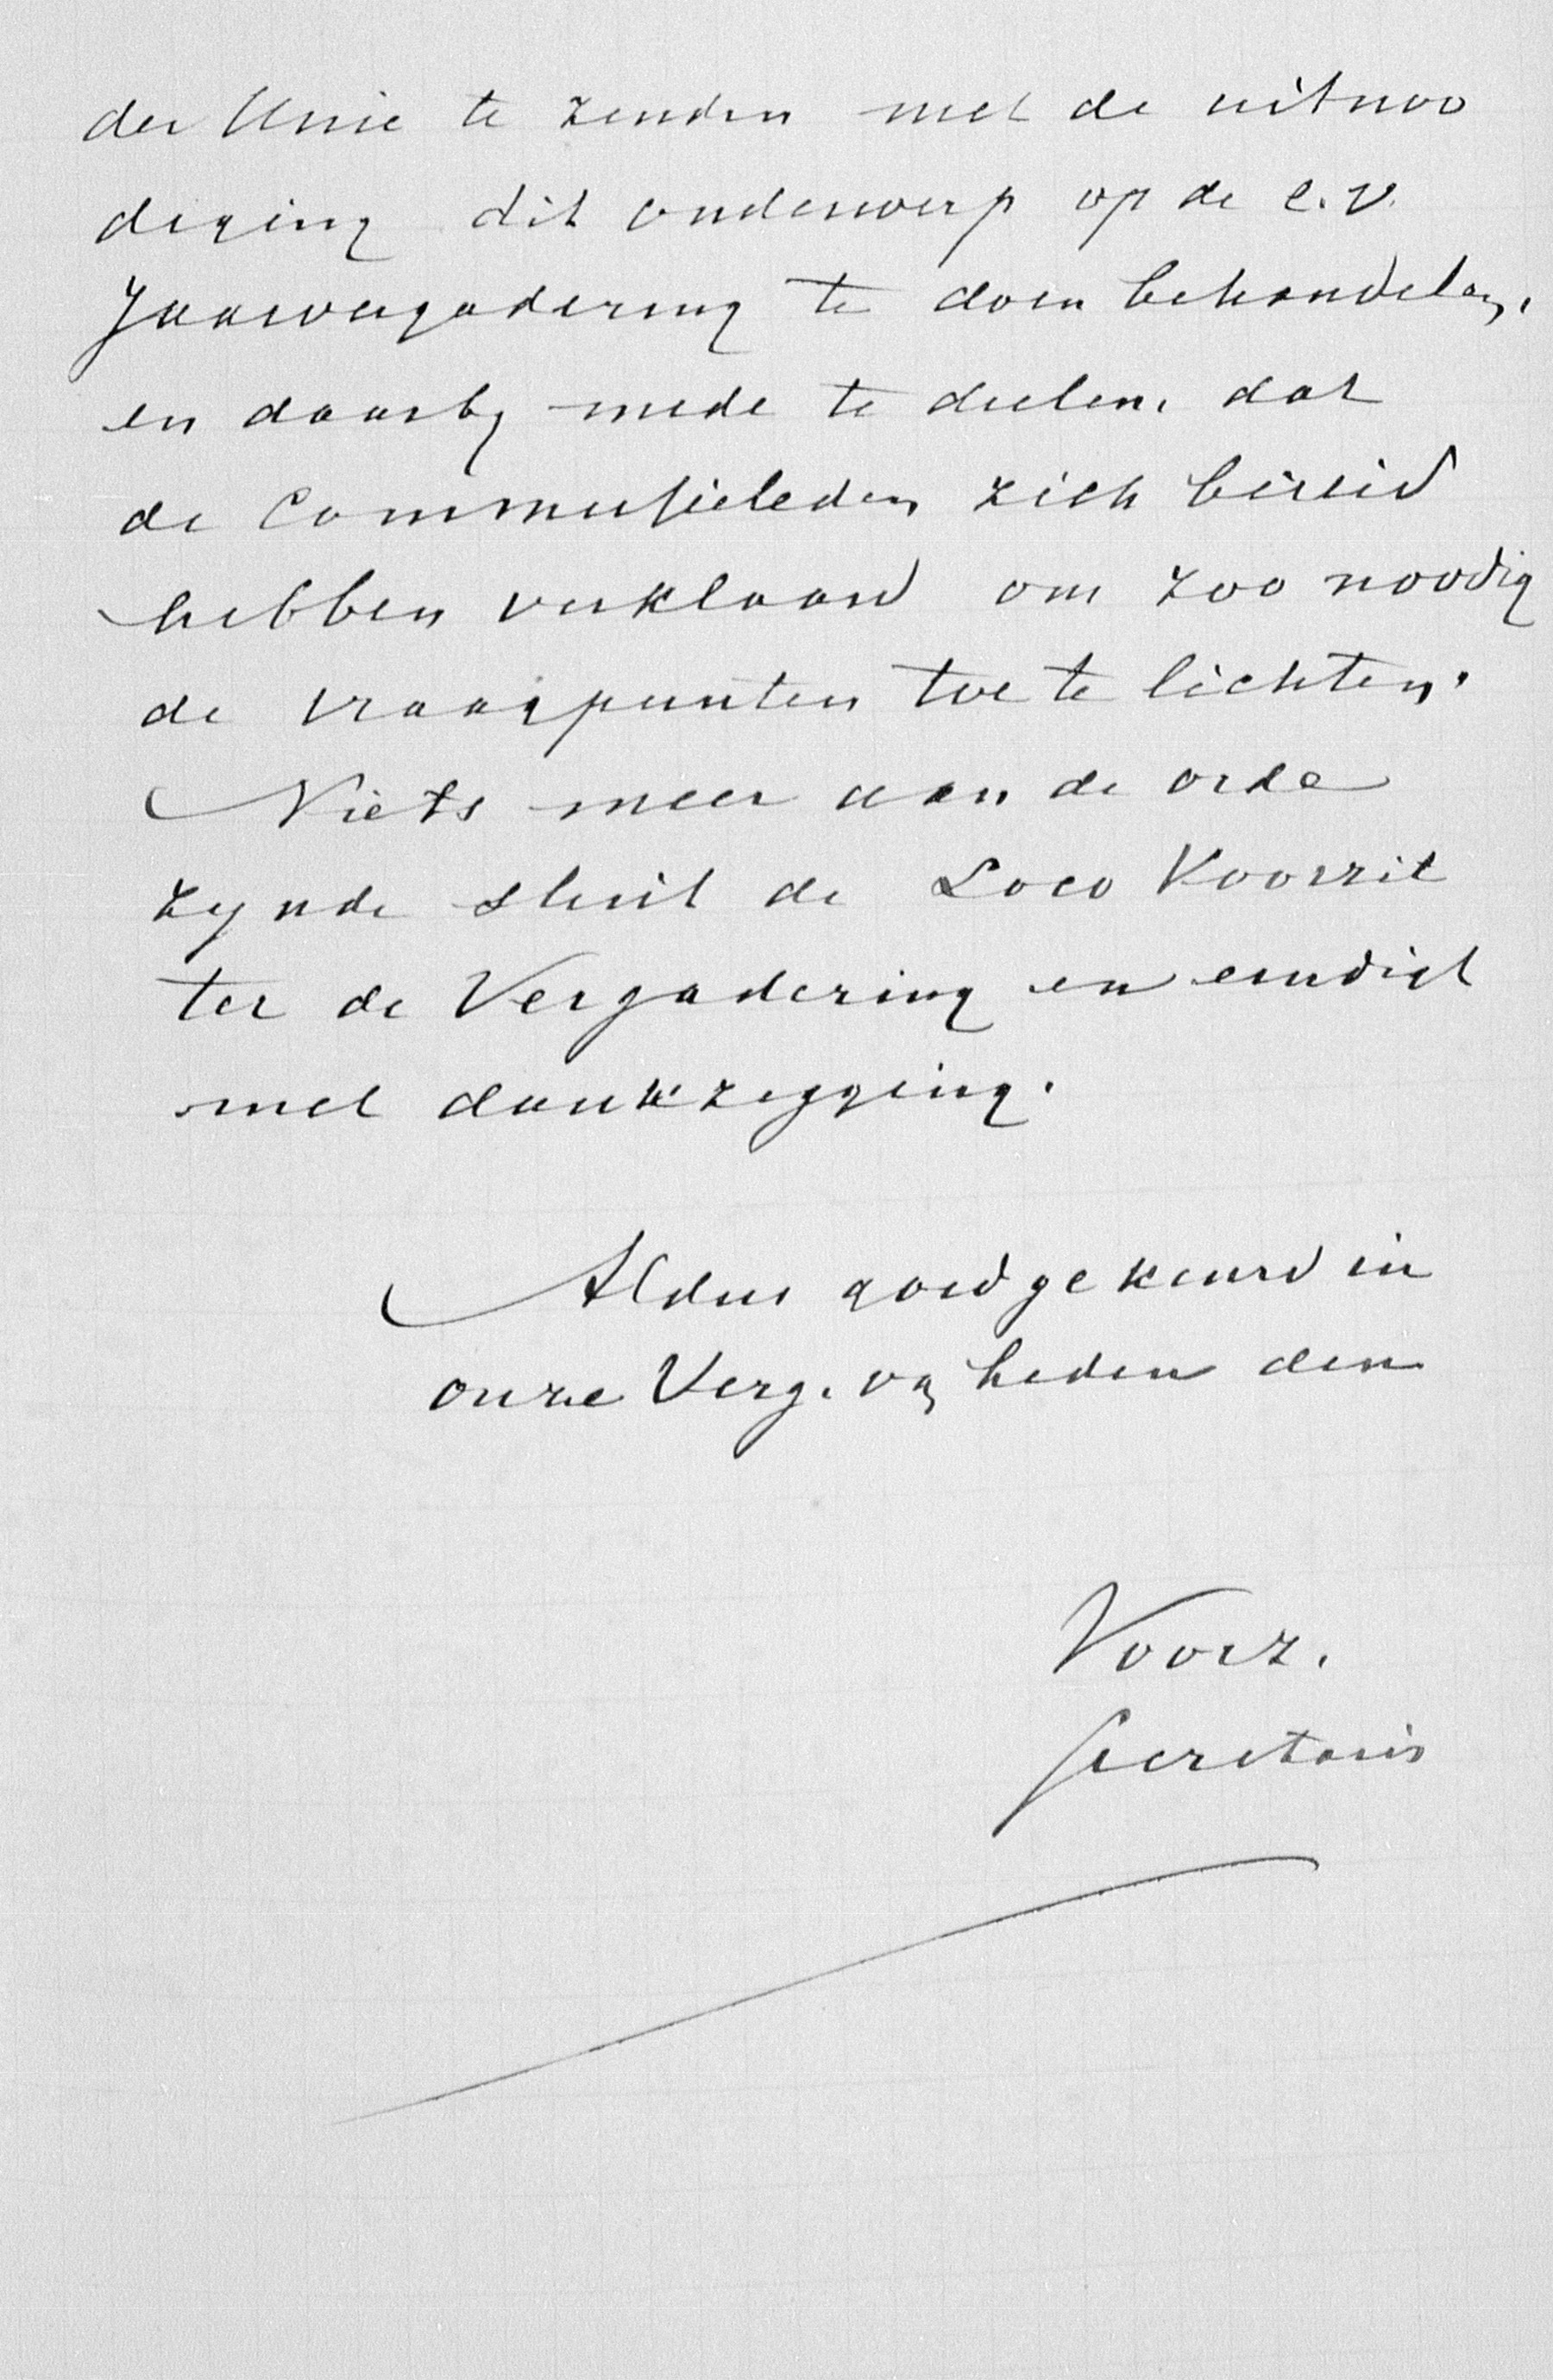 der Unie te zenden met de uitnoo
diging dit onderwerp op de e.v.
Jaarvergadering te doen behandelen,
en daarby mede te deelen, dat
de Commissieleden zich bereid
hebben verklaard om zoo noodig
de vraagpunten toe te lichten.
Niets meer aan de orde
zynde sluit de Loco Voorzit
ter de Vergadering en eindigt
met dankzegging.
Aldus goedgekeurd in
onze Verg. van heden den
Voorz.
Secretaris